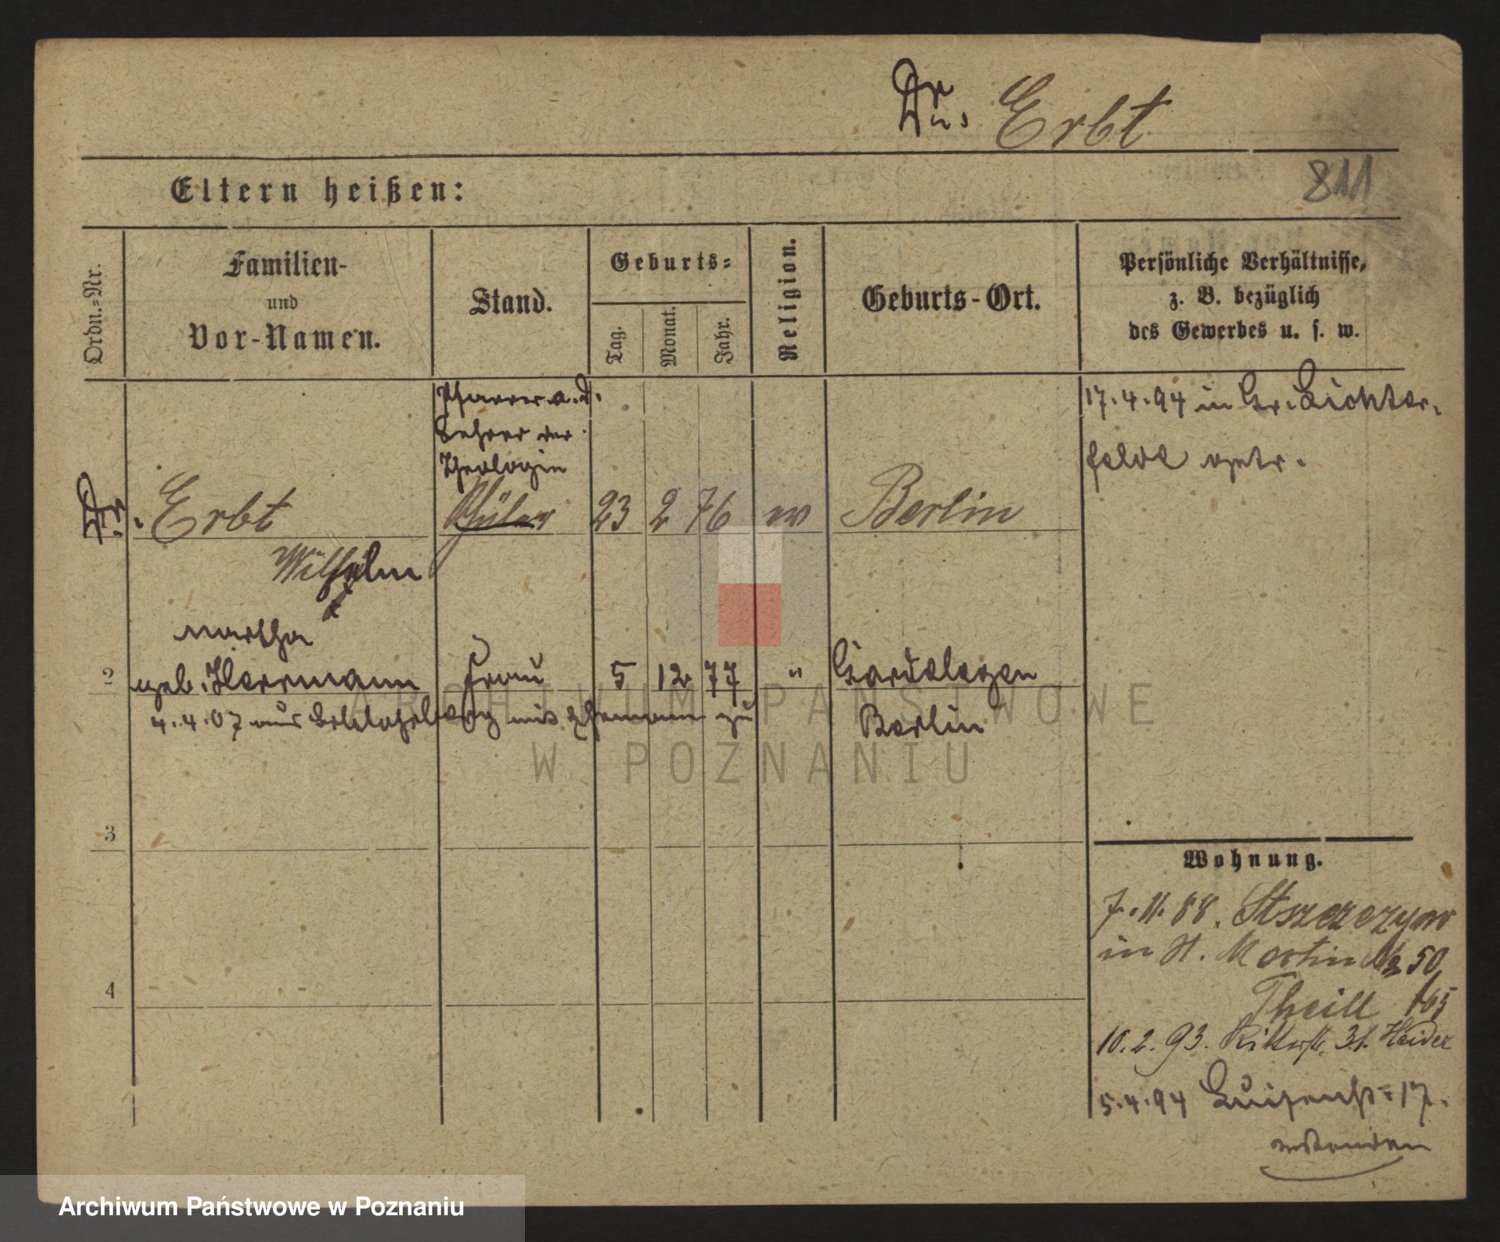 Dr. Erbt
811
Eltern heißen:
Ordn.-Nr.
Familien-
und
Vor-Namen.
Stand.
Geburts-
Tag.
Monat.
Jahr.
Religion.
Geburts-Ort.
Persönliche Verhältnisse,
z. B. bezüglich
des Gewerbes u. s. w.
Pfarrer a. D.
Lehrer der
Theologie
17.4.94 in Gr. Lichter-
felde
Dr. Erbt
Schüler
23 2 76
Berlin
Wilhelm
Martha
2 geb. Herrmann Frau 5 12 77 " Gardelegen
4.4.07 aus mit Ehemann zu Berlin
3
4
Wohnung.
7.11.88.
in St. Martin № 50
Theill
10.2.93. Ritterstr. 31. Heider
5.4.94 Luisenstr. 17.
ARCHIWUM PAŃSTWOWE
W POZNANIU
Archiwum Państwowe w Poznaniu